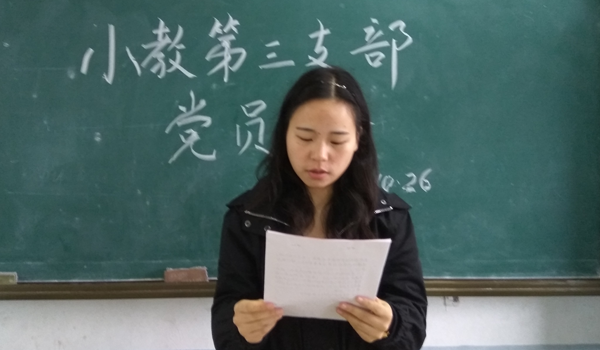 小教第三支部
党员
10.26